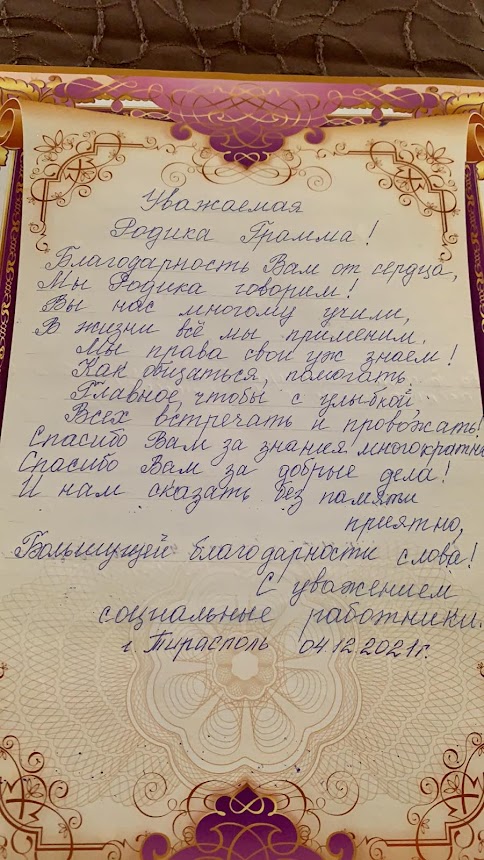 Уважаемая
Родика Грамма!
Благодарность Вам от сердца,
Мы Родика говорим!
Вы нас многому учили,
В жизни всё мы применим.
Мы права свои уж знаем!
Как общаться, помогать,
Главное, чтобы с улыбкой
Всех встречать и провожать!
Спасибо Вам за знания многократно
Спасибо Вам за добрые дела!
И нам сказать без памяти
приятно,
Большущей благодарности слова!
С уважением
социальные работники.
г. Тирасполь 04.12.2021г.